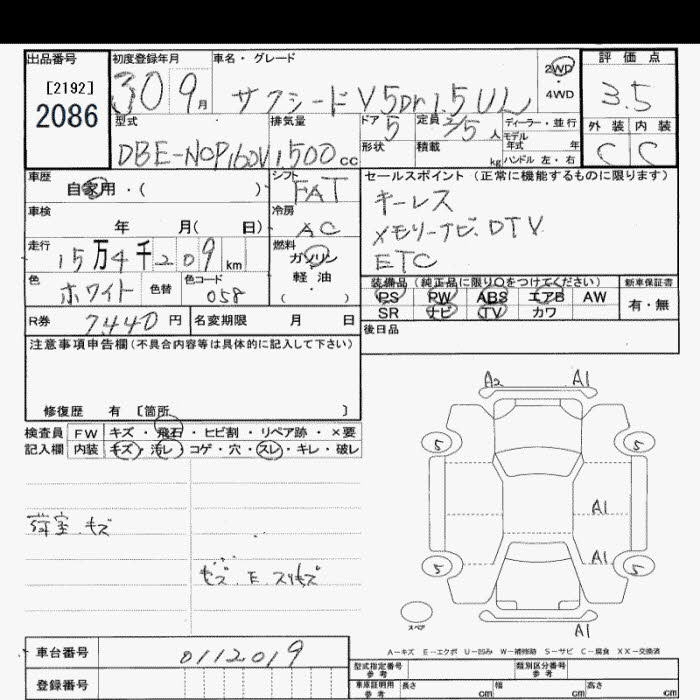 出品番号 初度登録年月 車名・グレード 評価点
[2192]
2086
30 9月 サクシード V 5Dr 1.5 UL 2WD
4WD
3.5
型式 排気量 ドア 5 定員 2/5 人 ディーラー・並行
モデル年式 年
外装 内装
DBE-NCP160V 1500cc 形状 積載 kg ハンドル 左・右 C C
車歴 自家用・( ) シフト FAT
セールスポイント(正常に機能するものに限ります)
車検 年 月( 日) 冷房 AC
キーレス
メモリーナビ.DTV
ETC
走行 15万4千209km 燃料 ガソリン
・
軽油
( )
色 ホワイト 色替 色コード 058
装備品(純正品に限り○をつけてください) 新車保証書
PS PW ABS エアB AW 有・無
SR ナビ TV カワ
R券 7,440円 名変期限 月 日
後日品
注意事項申告欄(不具合内容等は具体的に記入して下さい)
修復歴 有 [箇所 ]
検査員 FW キズ・飛石・ヒビ割・リペア跡・×要
記入欄 内装 キズ・汚レ・コゲ・穴・スレ・キレ・破レ
A2 A1
5 5
A1
A1
5 5
A1
スペア
荷室.キズ
キズ.E.スリキズ
A-キズ E-エクボ U-凹み W-補修跡 S-サビ C-腐食 XX-交換済
車台番号 0112019
登録番号
型式指定番号 参考 類別区分番号 参考
車庫証明用 参考 長さ cm 幅 cm 高さ cm